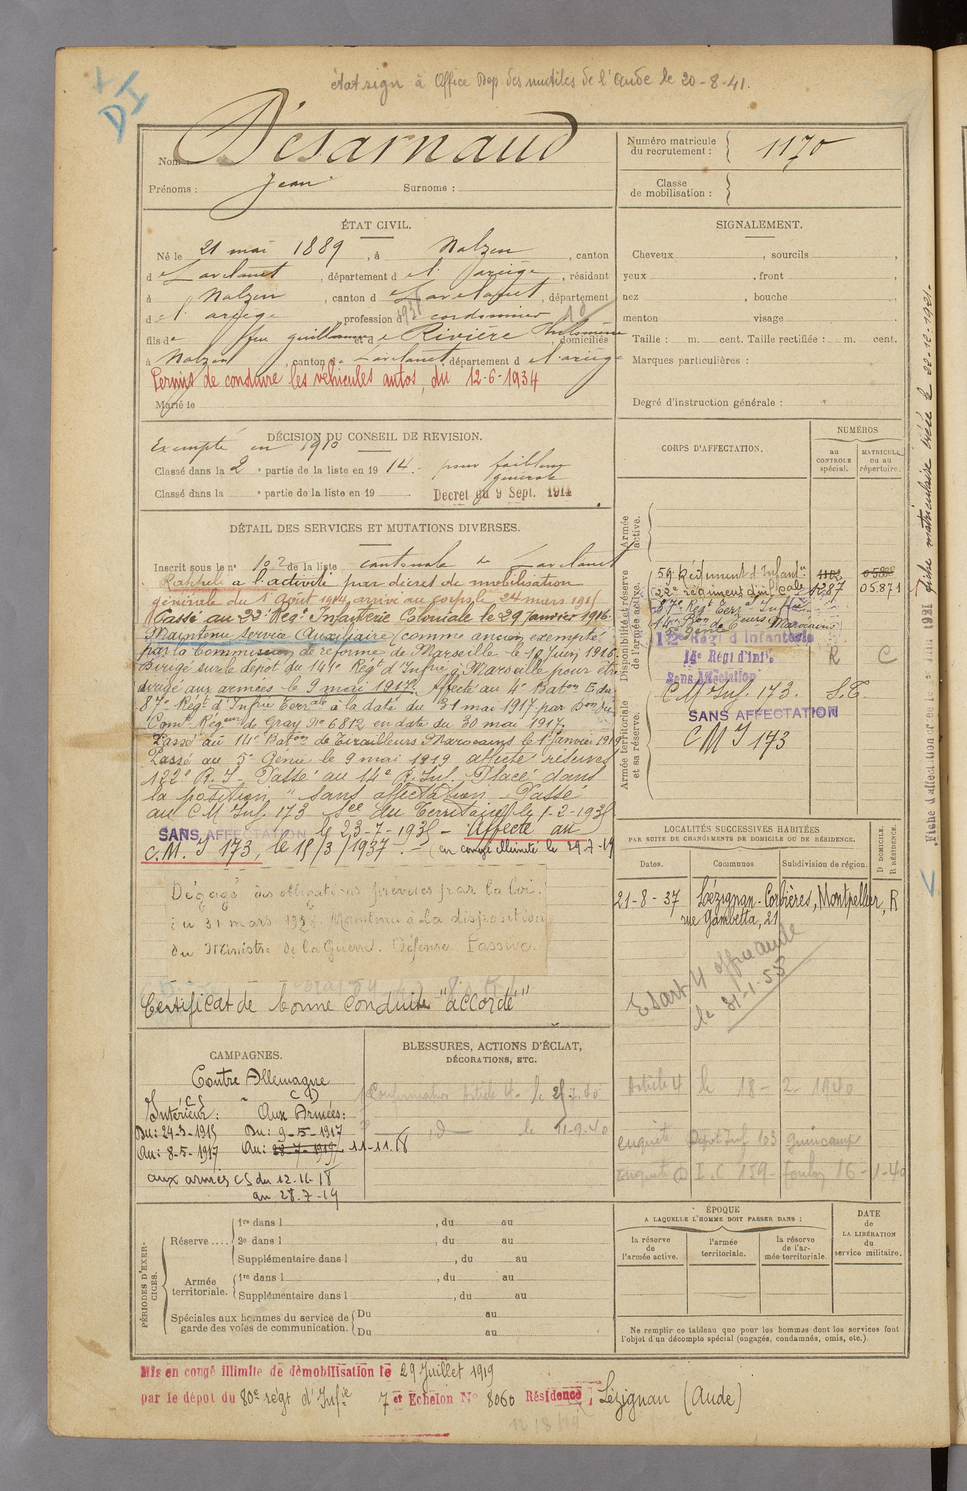 état sign à Office Dep. des mutilés de l'Aude le 20-8-41.
DI
Nom : Désarnaud
Prénoms : Jean Surnoms :
Numéro matricule du recrutement : 1170
Classe de mobilisation :
ÉTAT CIVIL.
Né le 21 mai 1889, à Nalzen, canton
d e Lavelanet, département d e l'ariège, résidant
à Nalzen, canton d e Lavelanet, département
d e l'ariège, profession d cordonnier
fils d e feu guillaume et d e Rivière domiciliés
à Nalzen, canton d e Lavelanet, département d e l'ariège
Permis de conduire les véhicules autos, du 12-6-1934
Marié le
SIGNALEMENT.
Cheveux , sourcils ,
yeux , front ,
nez , bouche ,
menton visage
Taille : m. cent. Taille rectifiée : m. cent.
Marques particulières :
Degré d'instruction générale :
DÉCISION DU CONSEIL DE REVISION.
Exempté en 1910
Classé dans la 2e partie de la liste en 1914. pour faiblesse générale
Classé dans la e partie de la liste en 19 Decret du 9 Sept. 1914
DÉTAIL DES SERVICES ET MUTATIONS DIVERSES.
Inscrit sous le no 102 de la liste cantonale de Lavelanet
Rappelé a l'activité par décret de mobilisation
générale du 1er Août 1914, arrivé au corps le 24 mars 1915
Passé au 22e Régt Infanterie Coloniale le 29 Janvier 1916
Maintenu Service Auxiliaire (comme ancien exempté)
par la Commission de réforme de Marseille le 10 Juin 1916.
Dirigé sur le depot du 141e Régt d'Infrie à Marseille pour être
dirigé aux armées le 9 mai 1917. Affecté au 4e Baton
87e Régt d'Infrie Terrale à la date du 31 mai 1917 par Don du
Comt Régeur de Gray No 6812 en date du 30 mai 1917.
Passé au 14e Baton de Tirailleurs Marocains le 1er Janvier 1919
Passé au 5e Génie le 9 mai 1919 affecté réserve
122e R.I. Passé au 14e R. Inf. Placé dans
la position "sans affectation" Passé
au C M Inf. 173 Sce du Territoire le 1-2-193
SANS AFFECTATION le 23-7-193 - Affecté au
C. M. I 173, le 15/3/1937. - (en congé illimité le 29-7-19
Dégagé des obligations prévues par la loi
du 31 mars 1928. Maintenu à la disposition
du Ministre de la Guerre. Défense Passive.
Certificat de bonne conduite "accordé"
CORPS D'AFFECTATION.
NUMÉROS
au CONTROLE spécial.
MATRICULE ou au répertoire.
Armée active.
Disponibilité et réserve de l'armée active.
Armée territoriale et sa réserve.
59e Régiment d'Infantie 1102
22e régiment d'inf Cole 1287 05871
87e Regt Terral Infrie
14e Bon de Tirrs Marocains
5e Génie
122e Régt d'Infanterie
14e Régt d'Infie R C
Sans Affectation
C M Inf. 173. S.T.
SANS AFFECTATION
C M I 173
fiche matriculaire créée le 22-12-1921.
LOCALITÉS SUCCESSIVES HABITÉES
PAR SUITE DE CHANGEMENTS DE DOMICILE OU DE RÉSIDENCE.
D DOMICILE. R RÉSIDENCE.
Dates. Communes Subdivision de région.
21-8-37 Lézignan-Corbières, Montpellier, R
rue Gambetta, 21
le 31-1-55
Article 4 le 18-2-1940
enquête Depot Inf 103 guincamp
enquête D I.C 159- toulon 16-1-40
CAMPAGNES.
Contre Allemagne
CS CD
Intérieur : Aux Armées :
Du : 24-3-1915 Du : 9-5-1917
Au : 8-5-1917 Au : 28-7-1919 11-11-18
aux armées CS du 12.11-18
au 28.7-19
BLESSURES, ACTIONS D'ÉCLAT,
DÉCORATIONS, ETC.
Confirmation Article 4
le 11-9-40
PÉRIODES D'EXERCICES.
Réserve .... 1re dans l , du au
2e dans l , du au
Supplémentaire dans l , du au
Armée territoriale. 1re dans l , du au
Supplémentaire dans l , du au
Spéciales aux hommes du service de garde des voies de communication. Du au
Du au
ÉPOQUE
A LAQUELLE L'HOMME DOIT PASSER DANS :
la réserve de l'armée active.
l'armée territoriale.
la réserve de l'armée territoriale.
DATE de LA LIBÉRATION du service militaire.
Ne remplir ce tableau que pour les hommes dont les services font l'objet d'un décompte spécial (engagés, condamnés, omis, etc.).
Mis en congé illimité de démobilisation le 29 Juillet 1919
par le dépôt du 80e régt d'Infie 7e Echelon No 8060 Résidence : Lézignan (Aude)
12/8/19